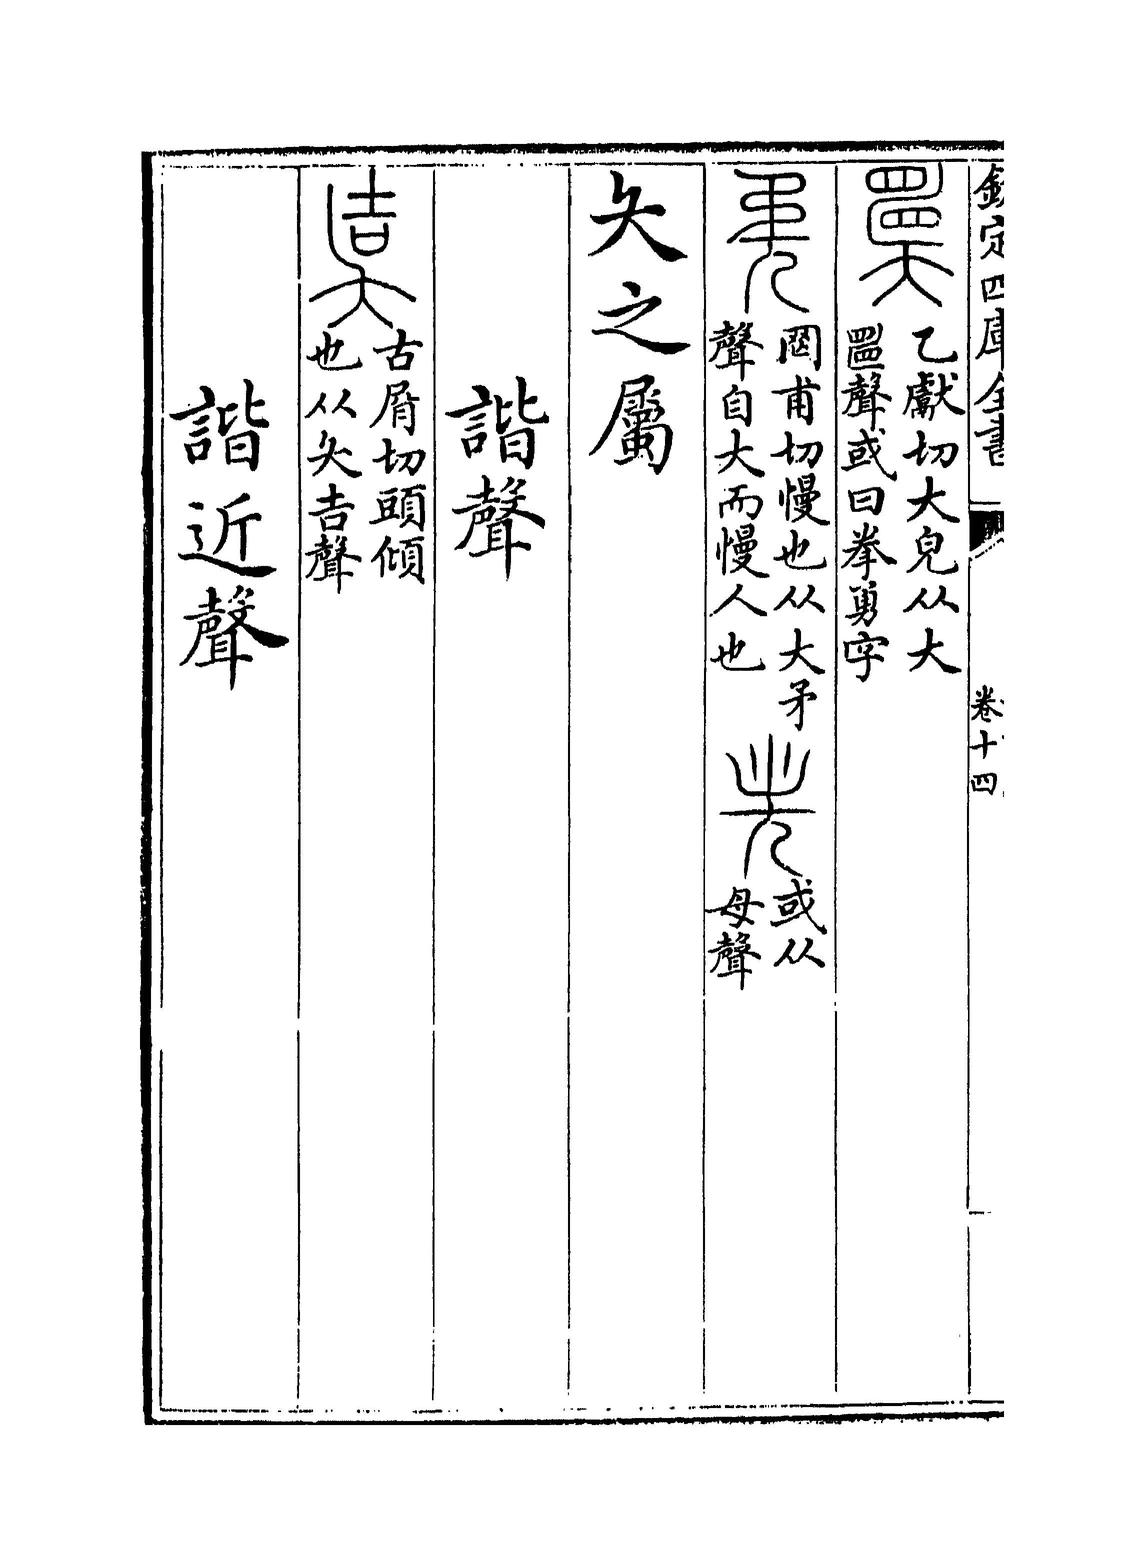 欽定四庫全書
卷十四
乙獻切大皃从大
聲或曰拳勇字
罔甫切慢也从大矛
聲自大而慢人也
或从
母聲
夨之屬
諧聲
古屑切頭傾
也从夨吉聲
諧近聲